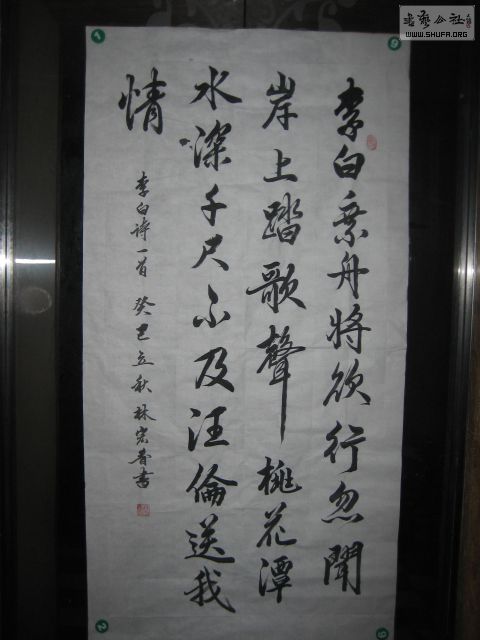 李白乘舟將欲行忽聞
岸上踏歌聲桃花潭
水深千尺不及汪倫送我
情
李白詩一首 癸巳立秋 林宏春書
書藝公社
WWW.SHUFA.ORG